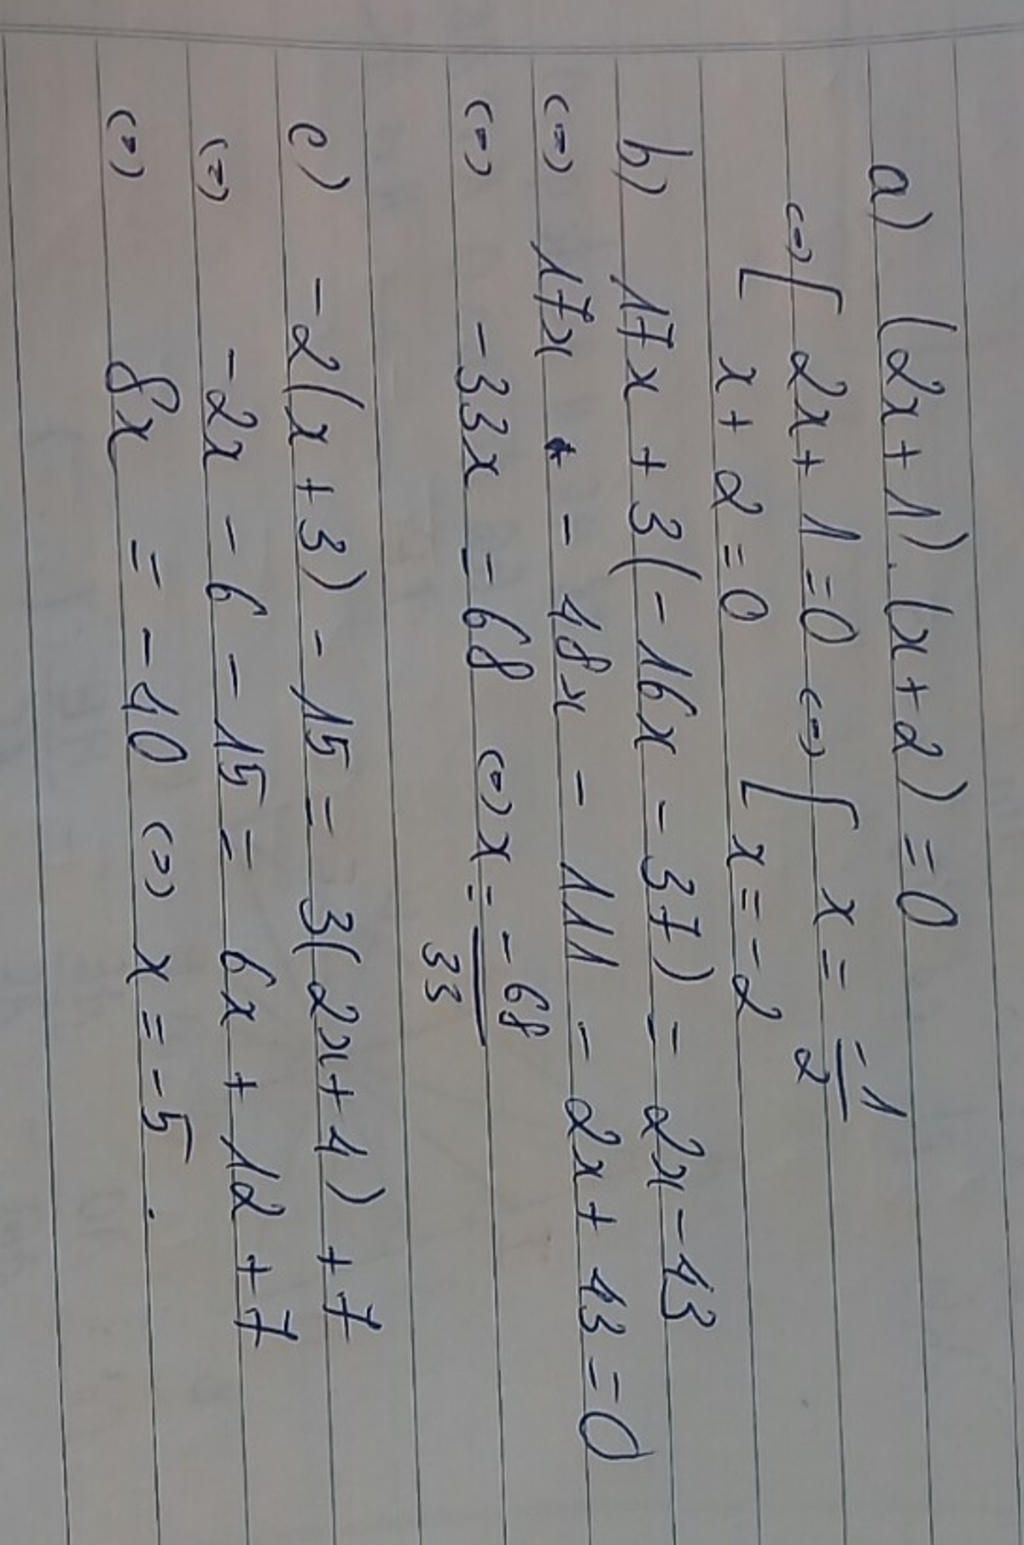 a) (2x+1).(x+2)=0
<=> [ 2x+1=0 <=> [ x = -1/2
x+2=0 x=-2
b) 17x + 3(-16x - 37) = 2x - 43
<=> 17x - 48x - 111 - 2x + 43 = 0
<=> -33x = 68 <=> x = -68/33
c) -2(x+3) - 15 = 3(2x+4) + 7
<=> -2x - 6 - 15 = 6x + 12 + 7
<=> 8x = -40 <=> x = -5.